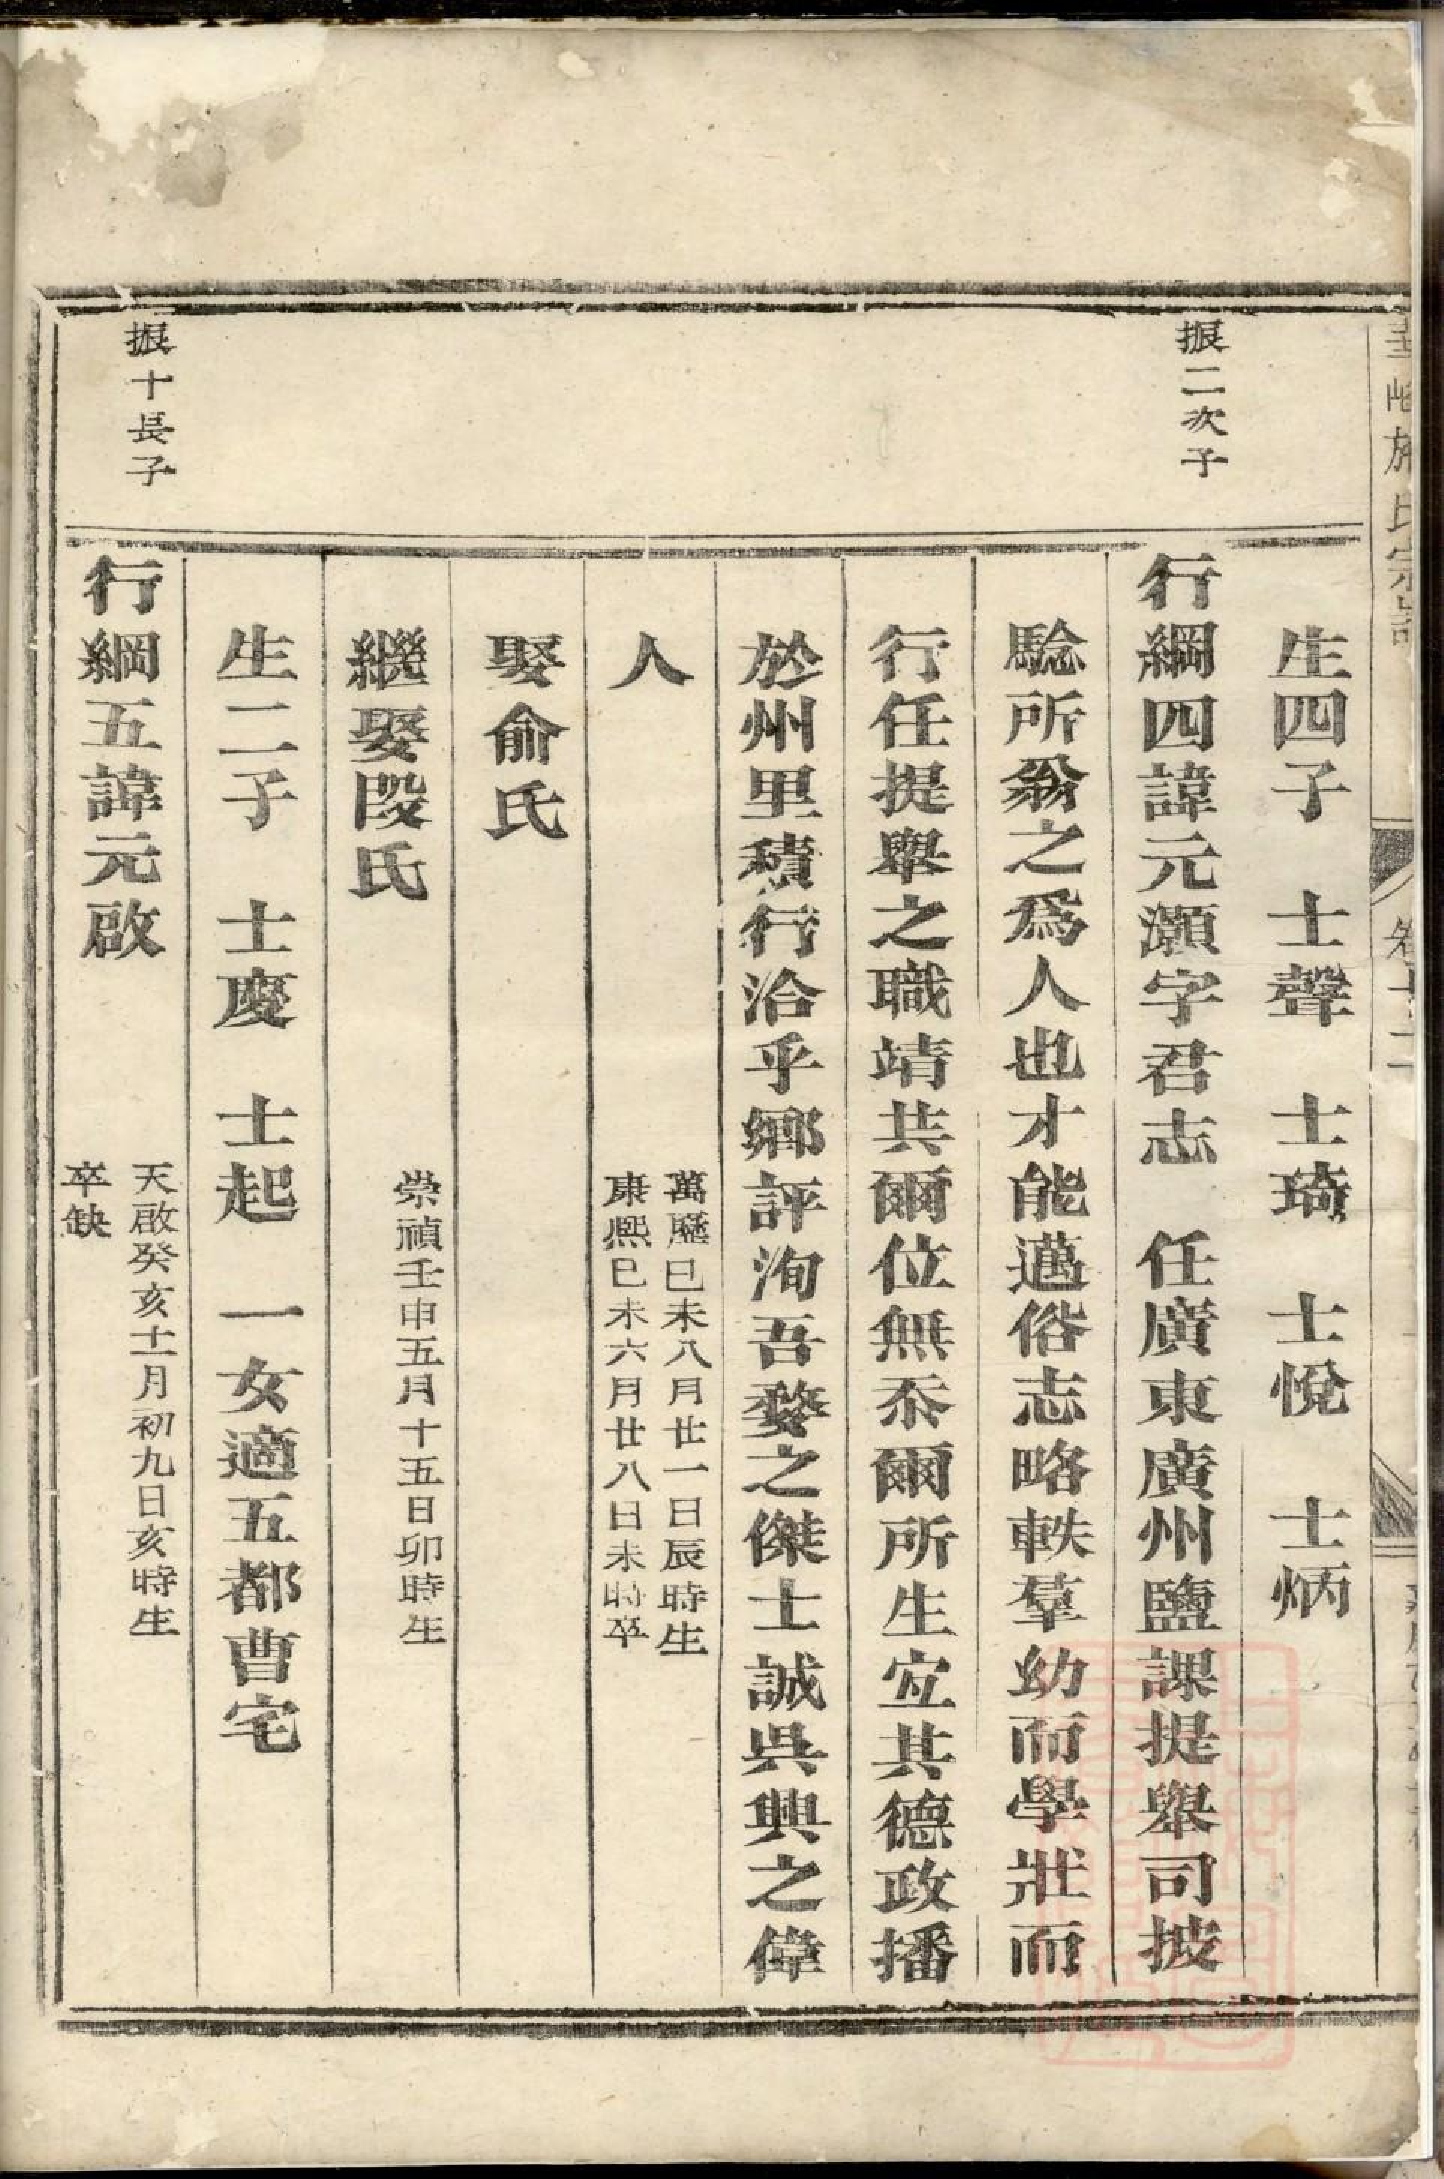 施氏宗譜
卷十二
生四子　士聲　士琦　士悅　士炳
振二次子
行綱四諱元灝字君志　任廣東廣州鹽課提舉司披
騐所翁之爲人也才能邁俗志略軼羣幼而學壯而
行任提舉之職靖共爾位無忝爾所生宜其德政播
於州里積行洽乎鄉評洵吾婺之傑士誠吳興之偉
人
萬歷已未八月廿一日辰時生
康熙已未六月廿八日未時卒
娶俞氏
繼娶段氏
崇禎壬申五月十五日卯時生
生二子　士慶　士起　一女適五都曹宅
振十長子
行綱五諱元啟
天啟癸亥十一月初九日亥時生
卒缺